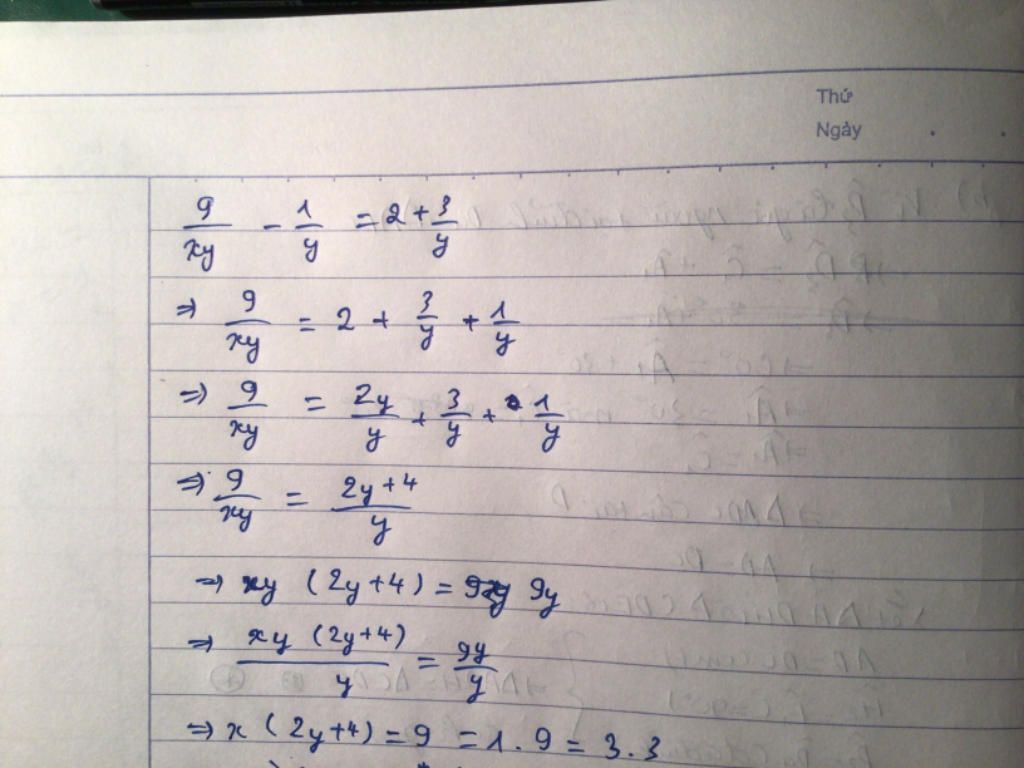 Thứ
Ngày
9/xy - 1/y = 2 + 3/y
⇒ 9/xy = 2 + 3/y + 1/y
⇒ 9/xy = 2y/y + 3/y + 1/y
⇒ 9/xy = (2y+4)/y
⇒ xy (2y+4) = 9y
⇒ xy (2y+4)/y = 9y/y
⇒ x (2y+4) = 9 = 1.9 = 3.3